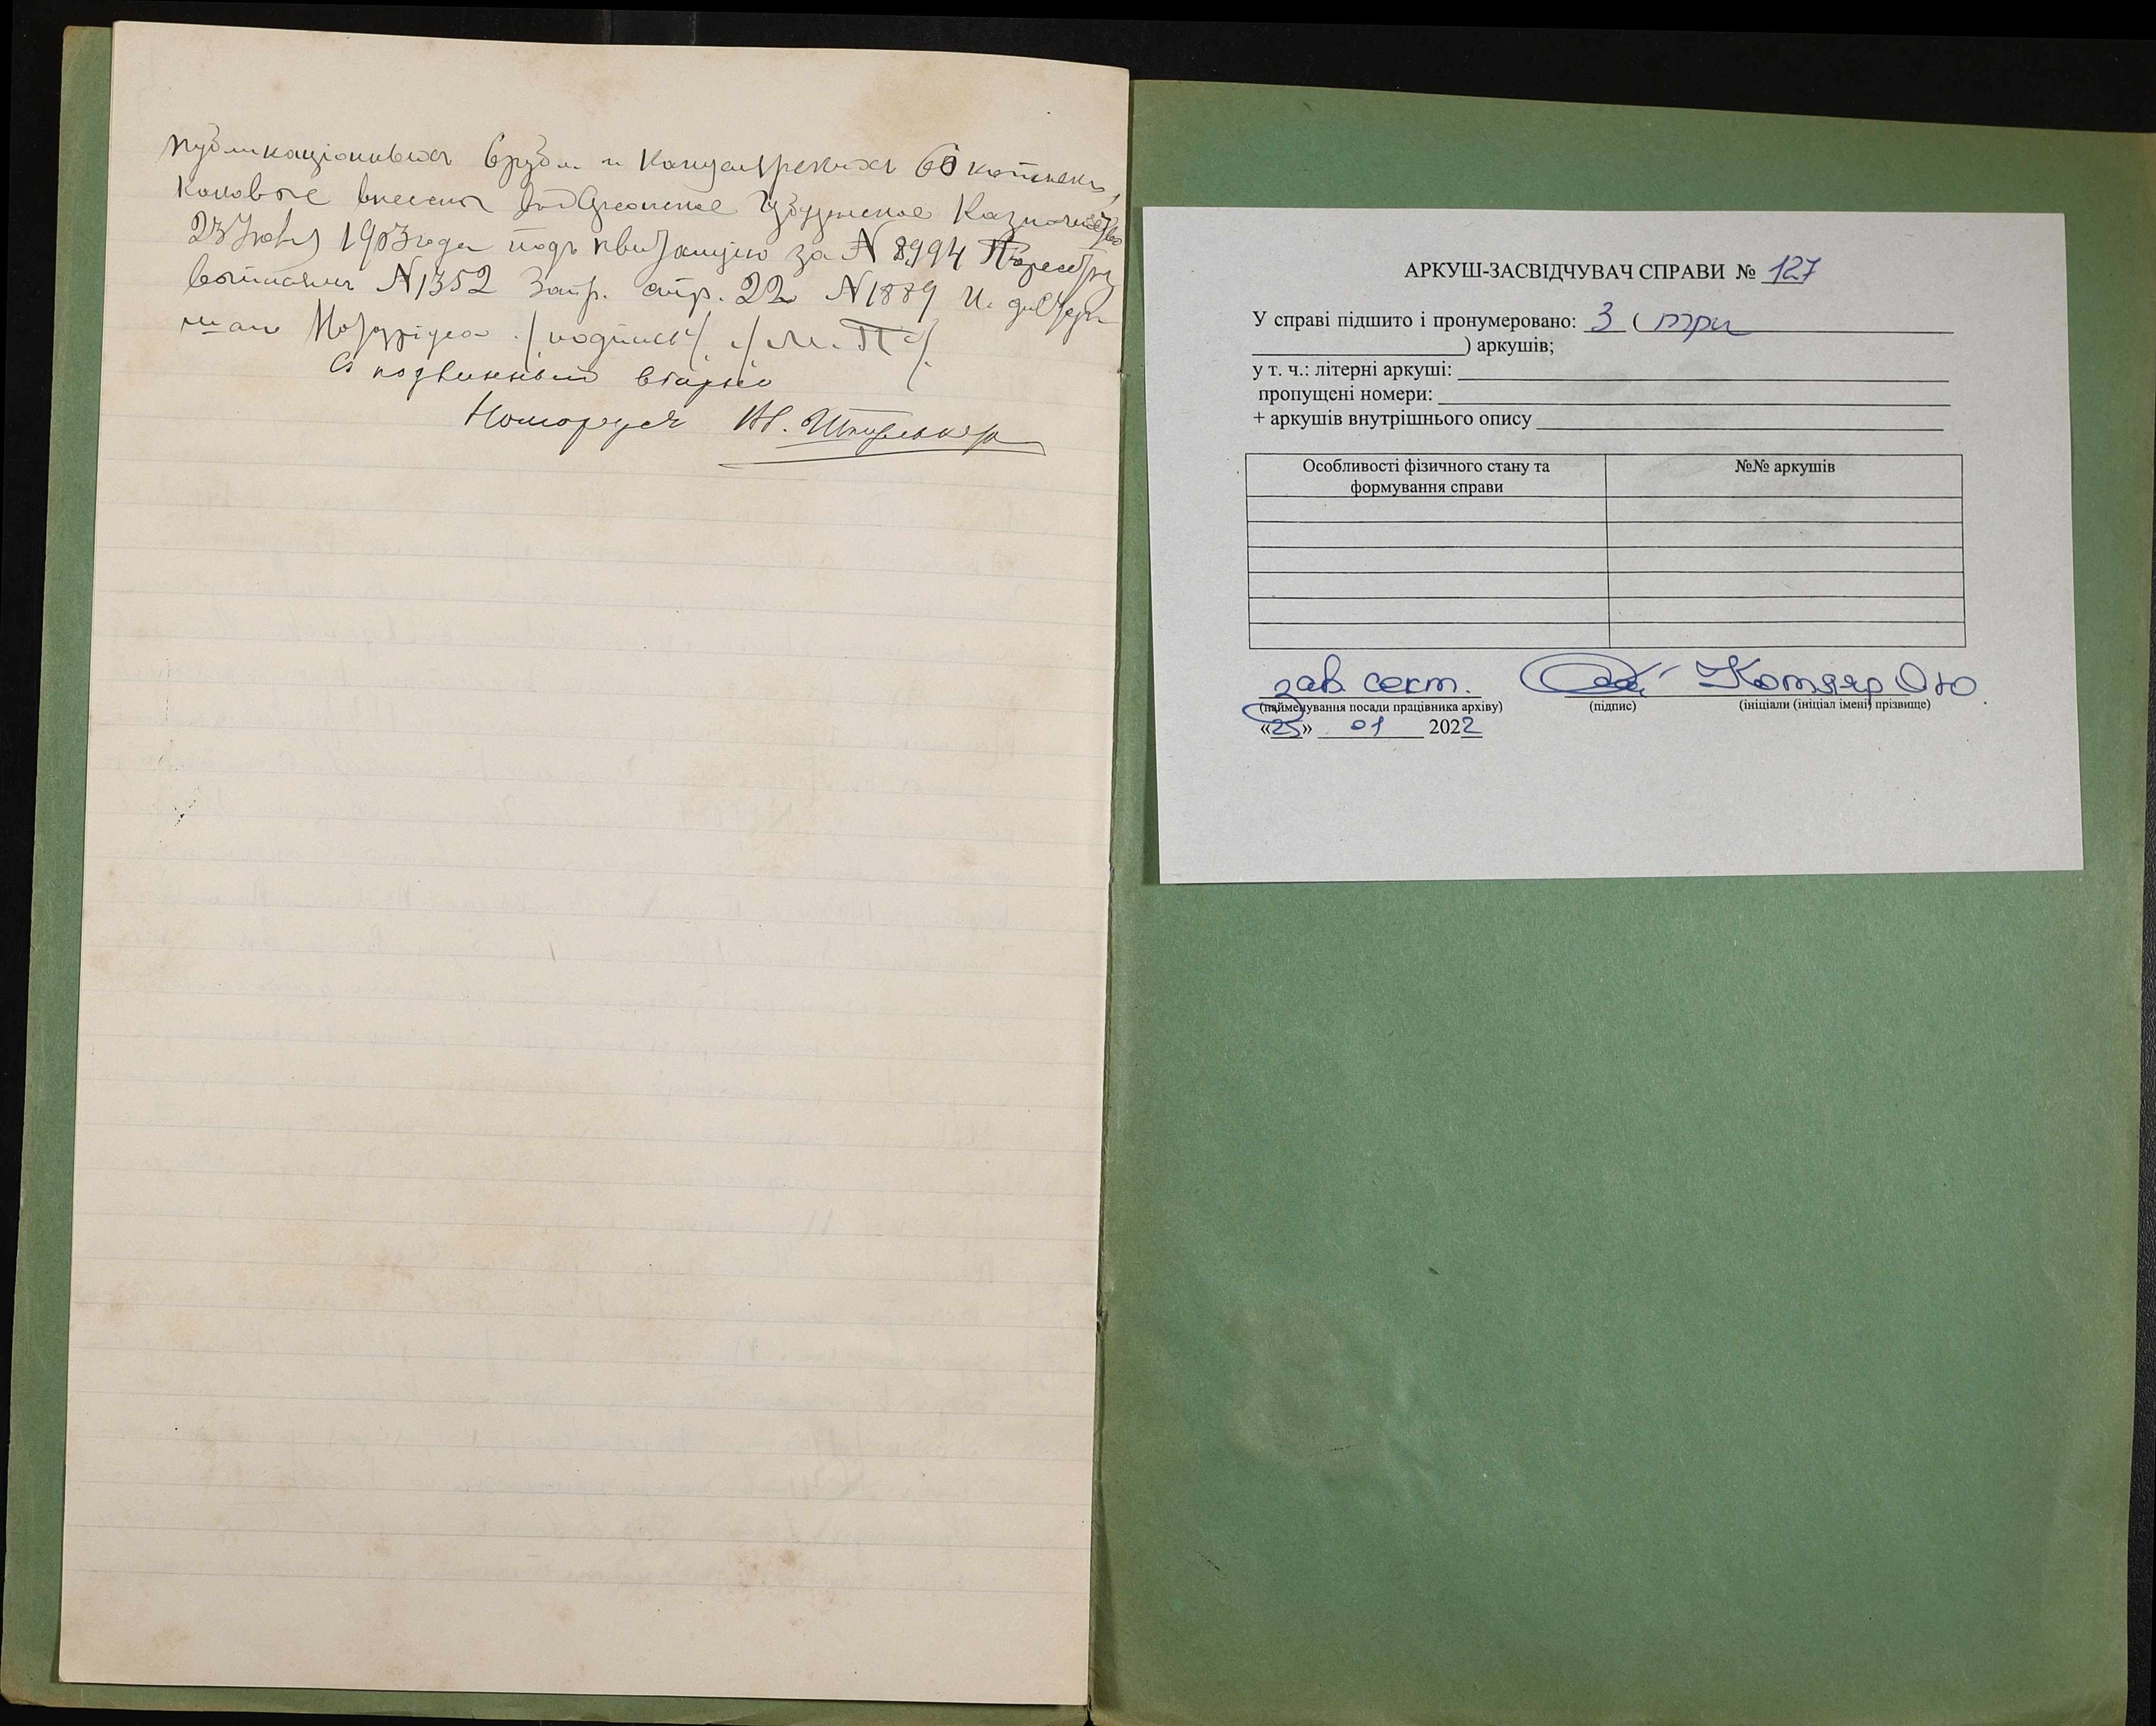 публикаціонныхъ 6 рубл. и канцелярскихъ 60 копѣекъ,
каковые внесены въ Уѣздное Казначейство
23 Іюля 1903 года подъ квитанцію за N 8994 По реестру
N 1352 Запр. стр. 22 N 1889 И. д. Стар
шаго Нотаріуса /подпись/. /М. П./.
Съ подлиннымъ вѣрно
Нотаріусъ
АРКУШ-ЗАСВІДЧУВАЧ СПРАВИ № 127
У справі підшито і пронумеровано: 3 ( три
) аркушів;
у т. ч.: літерні аркуші:
пропущені номери:
+ аркушів внутрішнього опису
Особливості фізичного стану та формування справи
№№ аркушів
зав. сект. Котляр О Ю
(найменування посади працівника архіву) (підпис) (ініціали (ініціал імені) прізвище)
«25» 01 2022